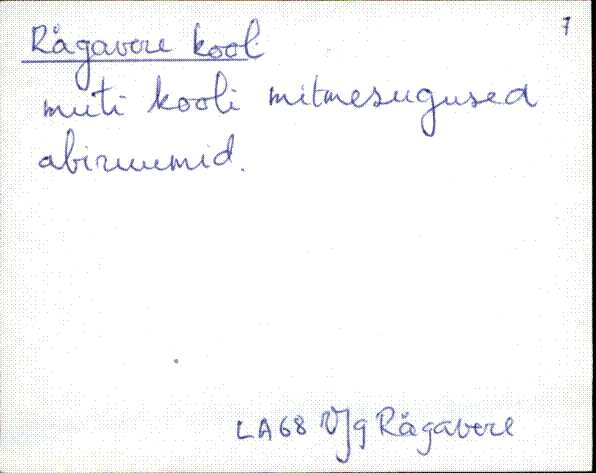 7
Rågavere kool
muti kooli mitmesugused
abiruumid.
LA68 VJg Rågavere